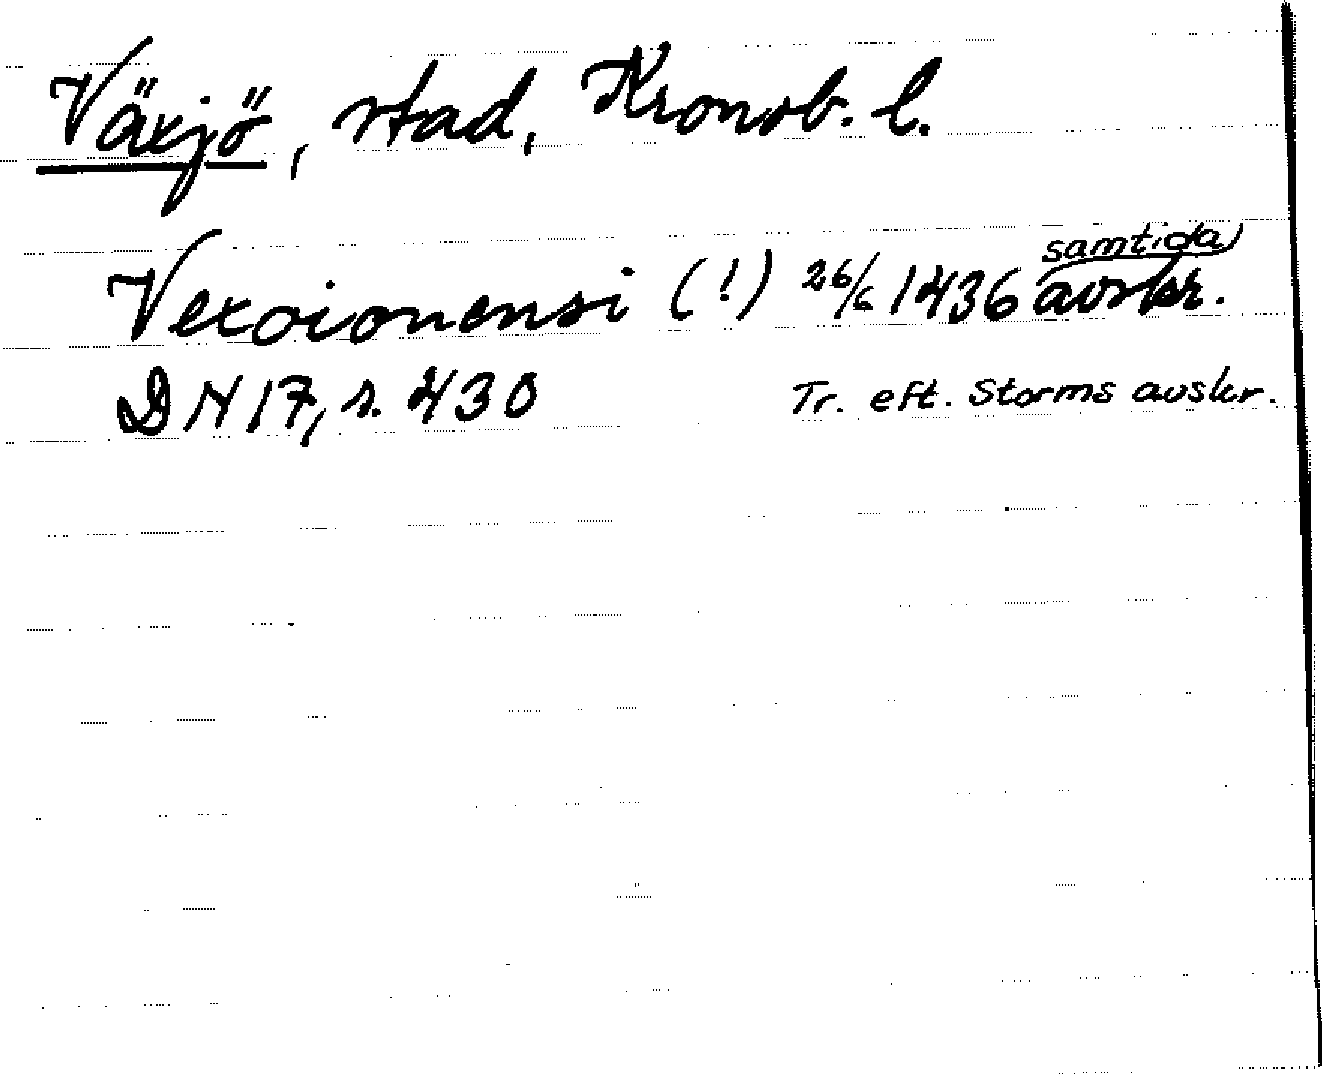 Växjö, stad, Kronob. l.
Vexoionensi (!) 26/6 1436 samtida avskr.
DN 17, s. 430 Tr. eft. Storms avskr.